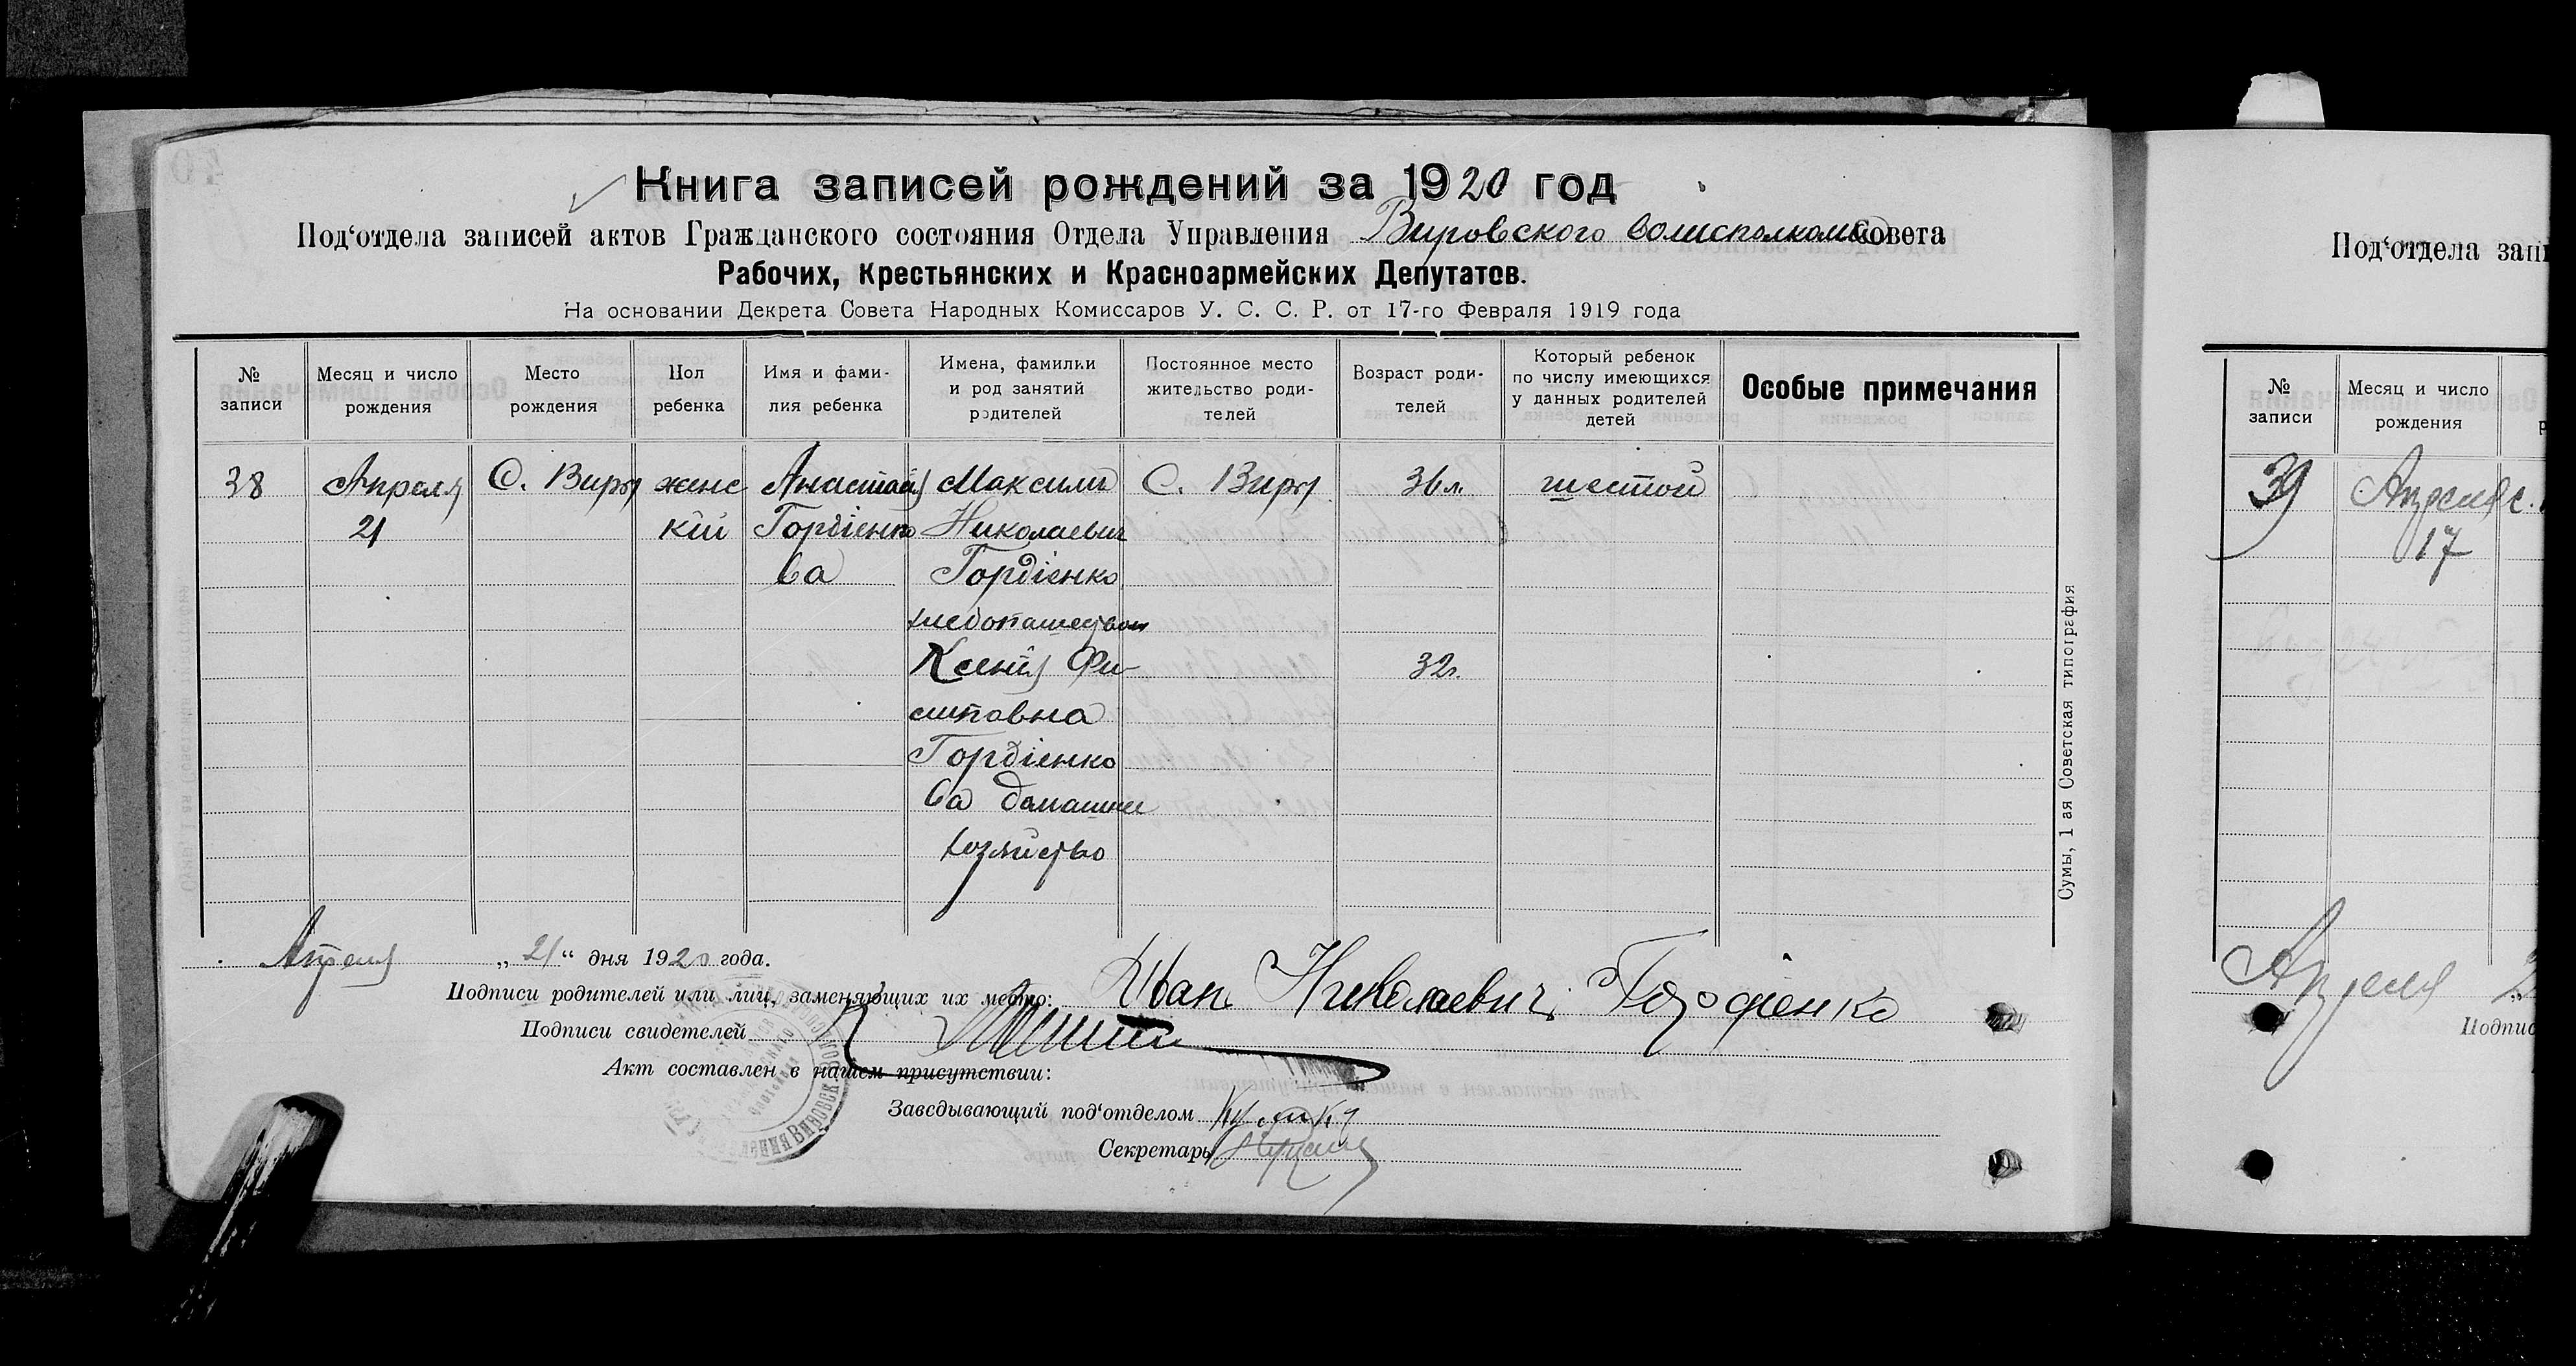 Книга записей рождений за 1920 год
Под‘отдела записей актов Гражданского состояния Отдела Управления Вировского волисполкома Совета
Рабочих, Крестьянских и Красноармейских Депутатов.
На основании Декрета Совета Народных Комиссаров У. С. С. Р. от 17-го Февраля 1919 года
№ записи
Месяц и число рождения
Место рождения
Пол ребенка
Имя и фами-
лия ребенка
Имена, фамилии
и род занятий
родителей
Постоянное место
жительство роди-
телей
Возраст роди-
телей
Который ребенок
по числу имеющихся
у данных родителей
детей
Особые примечания
38
Апреля
21
С. Виры
женс
кій
Анастасія
Гордіенко
ва
Максим
Николаевич
Гордіенко
хлебопашеством
Ксенія Фи-
липовна
Гордіенко
ва домашнее
хозяйство
С. Виры
36 л.
32 г.
шестой
Сумы, 1 ая Советская типография
Апреля „21“ дня 1920 года.
Подписи родителей или лиц, заменяющих их место: Иван Николаевич Гордіенко
Подписи свидетелей
Акт составлен в нашем присутствии:
Заведывающий под‘отделом
Секретарь
Под‘отдела
№ записи
Месяц и число
рождения
39
Апреля
17
с.
Апреля